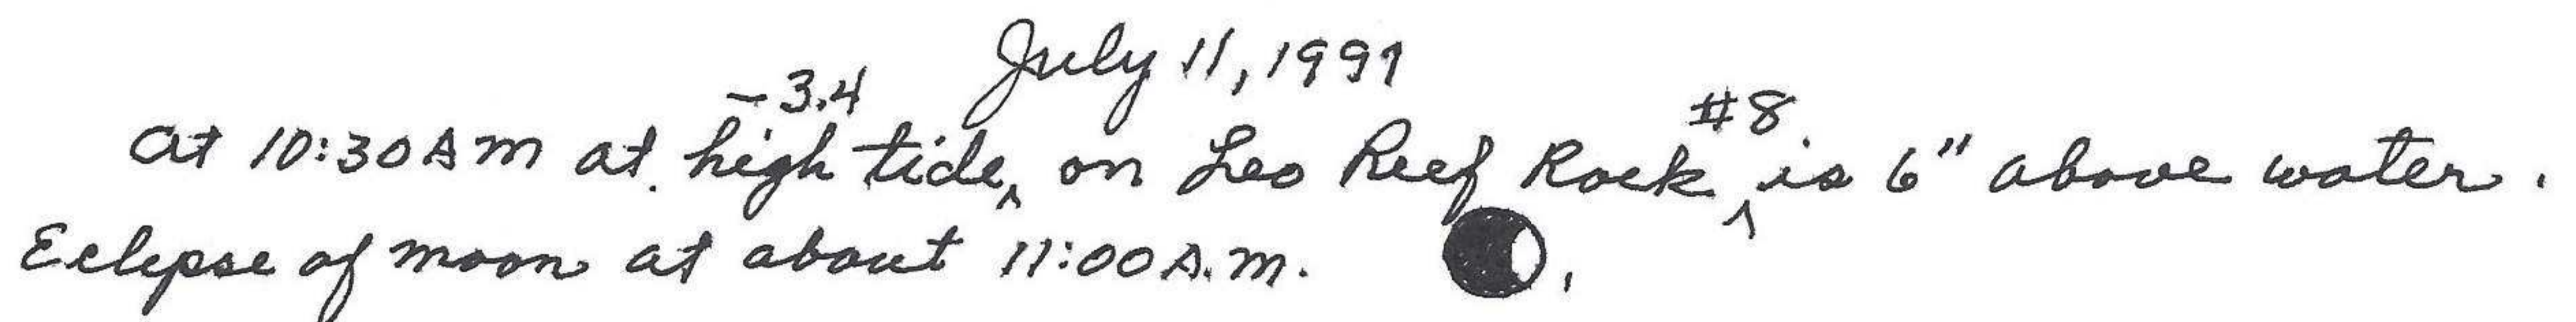 July 11, 1991
-3.4 #8.
at 10:30 AM at. high tide, ^ on Leo Reef Rock ^ is 6" above water.
Eclepse of moon at about 11:00 A.m.